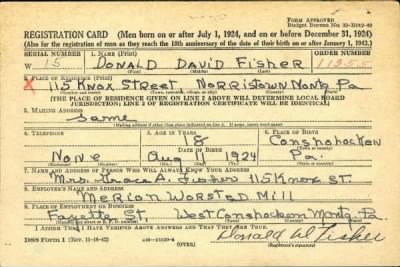 FORM APPROVED
REGISTRATION CARD (Men born on or after July 1, 1924, and on or before December 31, 1924)
(Also for the registration of men as they reach the 18th anniversary of the date of their birth on or after January 1, 1943.)
SERIAL NUMBER 1. NAME (Print) ORDER NUMBER
W 15 DONALD DAVID FISHER 11355
(First) (Middle) (Last)
2. PLACE OF RESIDENCE (Print)
X 115 KNOX STREET NORRISTOWN MONTG PA
[THE PLACE OF RESIDENCE GIVEN ON LINE 2 ABOVE WILL DETERMINE LOCAL BOARD
JURISDICTION; LINE 2 OF REGISTRATION CERTIFICATE WILL BE IDENTICAL]
3. MAILING ADDRESS
Same
[Mailing address if other than place indicated on line 2. If same insert word same]
4. TELEPHONE 5. AGE IN YEARS 6. PLACE OF BIRTH
18 Conshohocken
DATE OF BIRTH
None Aug 1924 Pa.
7. NAME AND ADDRESS OF PERSON WHO WILL ALWAYS KNOW YOUR ADDRESS
Mrs. Grace A. Fisher 115 Knox St.
8. EMPLOYER'S NAME AND ADDRESS
MERION WORSTED MILL
9. PLACE OF EMPLOYMENT OR BUSINESS
Fayette St, West Conshocken Montg. Pa.
I AFFIRM THAT I HAVE VERIFIED ABOVE ANSWERS AND THAT THEY ARE TRUE.
DSS Form 1 (Rev. 11-16-42) (OVER) Donald D Fisher
(Registrant's signature)